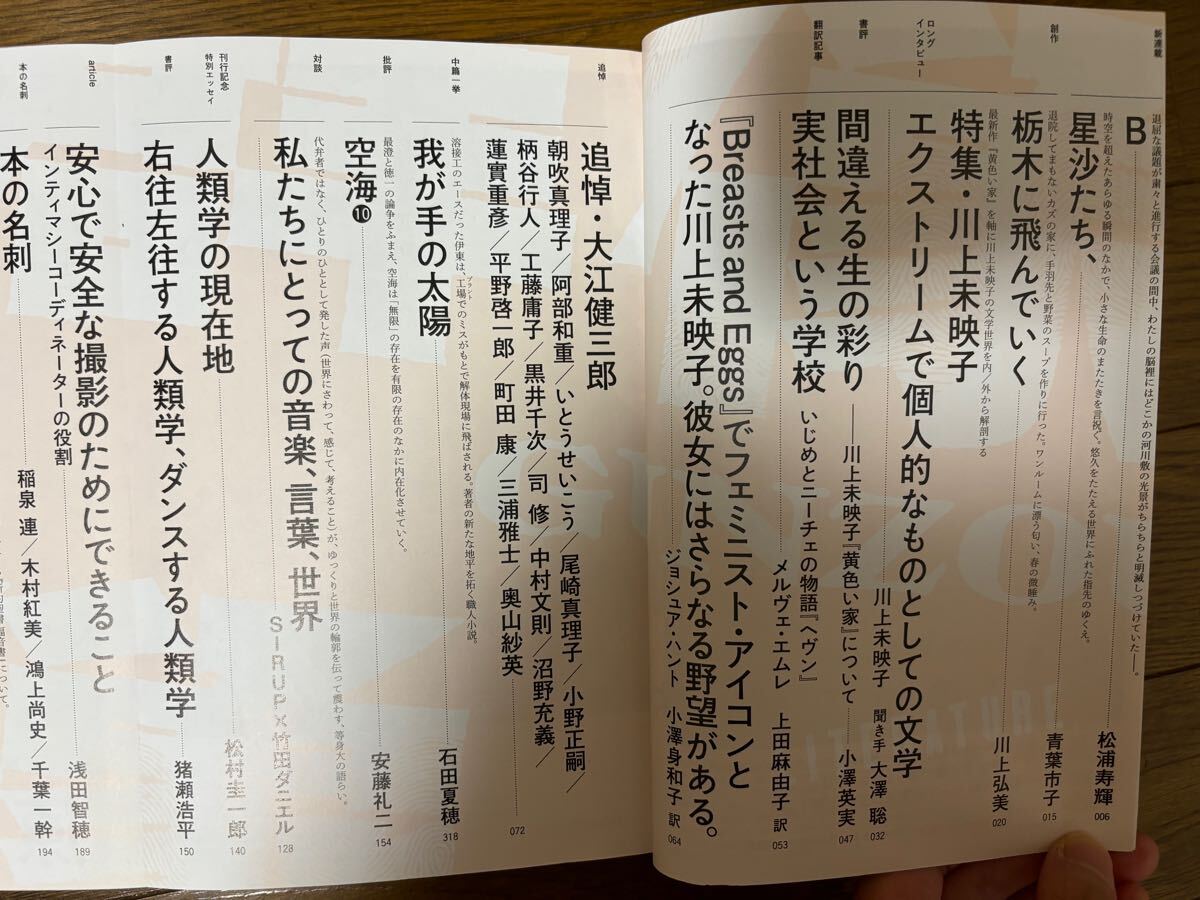 新連載
B
退屈な議題が粛々と進行する会議の間中、わたしの脳裡にはどこかの河川敷の光景がちらちらと明滅しつづけていた――。
松浦寿輝
006
星沙たち、
時空を超えたあらゆる瞬間のなかで、小さな生命のまたたきを言祝ぐ。悠久をたたえる世界にふれた指先のゆくえ。
青葉市子
015
創作
栃木に飛んでいく
退院してまもないカズの家に、手羽先と野菜のスープを作りに行った。ワンルームに漂う匂い、春の微睡み。
川上弘美
020
特集・川上未映子
最新作『黄色い家』を軸に川上未映子の文学世界を内/外から解剖する
ロング
インタビュー
エクストリームで個人的なものとしての文学
川上未映子 聞き手 大澤 聡
032
書評
間違える生の彩り ――川上未映子『黄色い家』について
小澤英実
047
翻訳記事
実社会という学校 いじめとニーチェの物語『ヘヴン』
メルヴェ・エムレ 上田麻由子 訳
053
『Breasts and Eggs』でフェミニスト・アイコンと
なった川上未映子。彼女にはさらなる野望がある。
ジョシュア・ハント 小澤身和子 訳
064
追悼
追悼・大江健三郎
朝吹真理子/阿部和重/いとうせいこう/尾崎真理子/小野正嗣/
柄谷行人/工藤庸子/黒井千次/司 修/中村文則/沼野充義/
蓮實重彦/平野啓一郎/町田 康/三浦雅士/奥山紗英
072
中篇一挙
我が手の太陽
溶接工のエースだった伊東は、工場でのミスがもとで解体現場に飛ばされる。著者の新たな地平を拓く職人小説。
プラント
石田夏穂
318
批評
空海⑩
最澄と徳一の論争をふまえ、空海は「無限」の存在を有限の存在のなかに内在化させていく。
安藤礼二
154
対談
私たちにとっての音楽、言葉、世界
代弁者ではなく、ひとりのひととして発した声(世界にさわって、感じて、考えること)が、ゆっくりと世界の輪郭を伝って震わす、等身大の語らい。
SIRUP×竹田ダニエル
128
刊行記念
特別エッセイ
人類学の現在地
松村圭一郎
140
書評
右往左往する人類学、ダンスする人類学
猪瀬浩平
150
article
安心で安全な撮影のためにできること
インティマシーコーディネーターの役割
浅田智穂
189
本の名刺
本の名刺
稲泉 連/木村紅美/鴻上尚史/千葉一幹
194
GUNZO